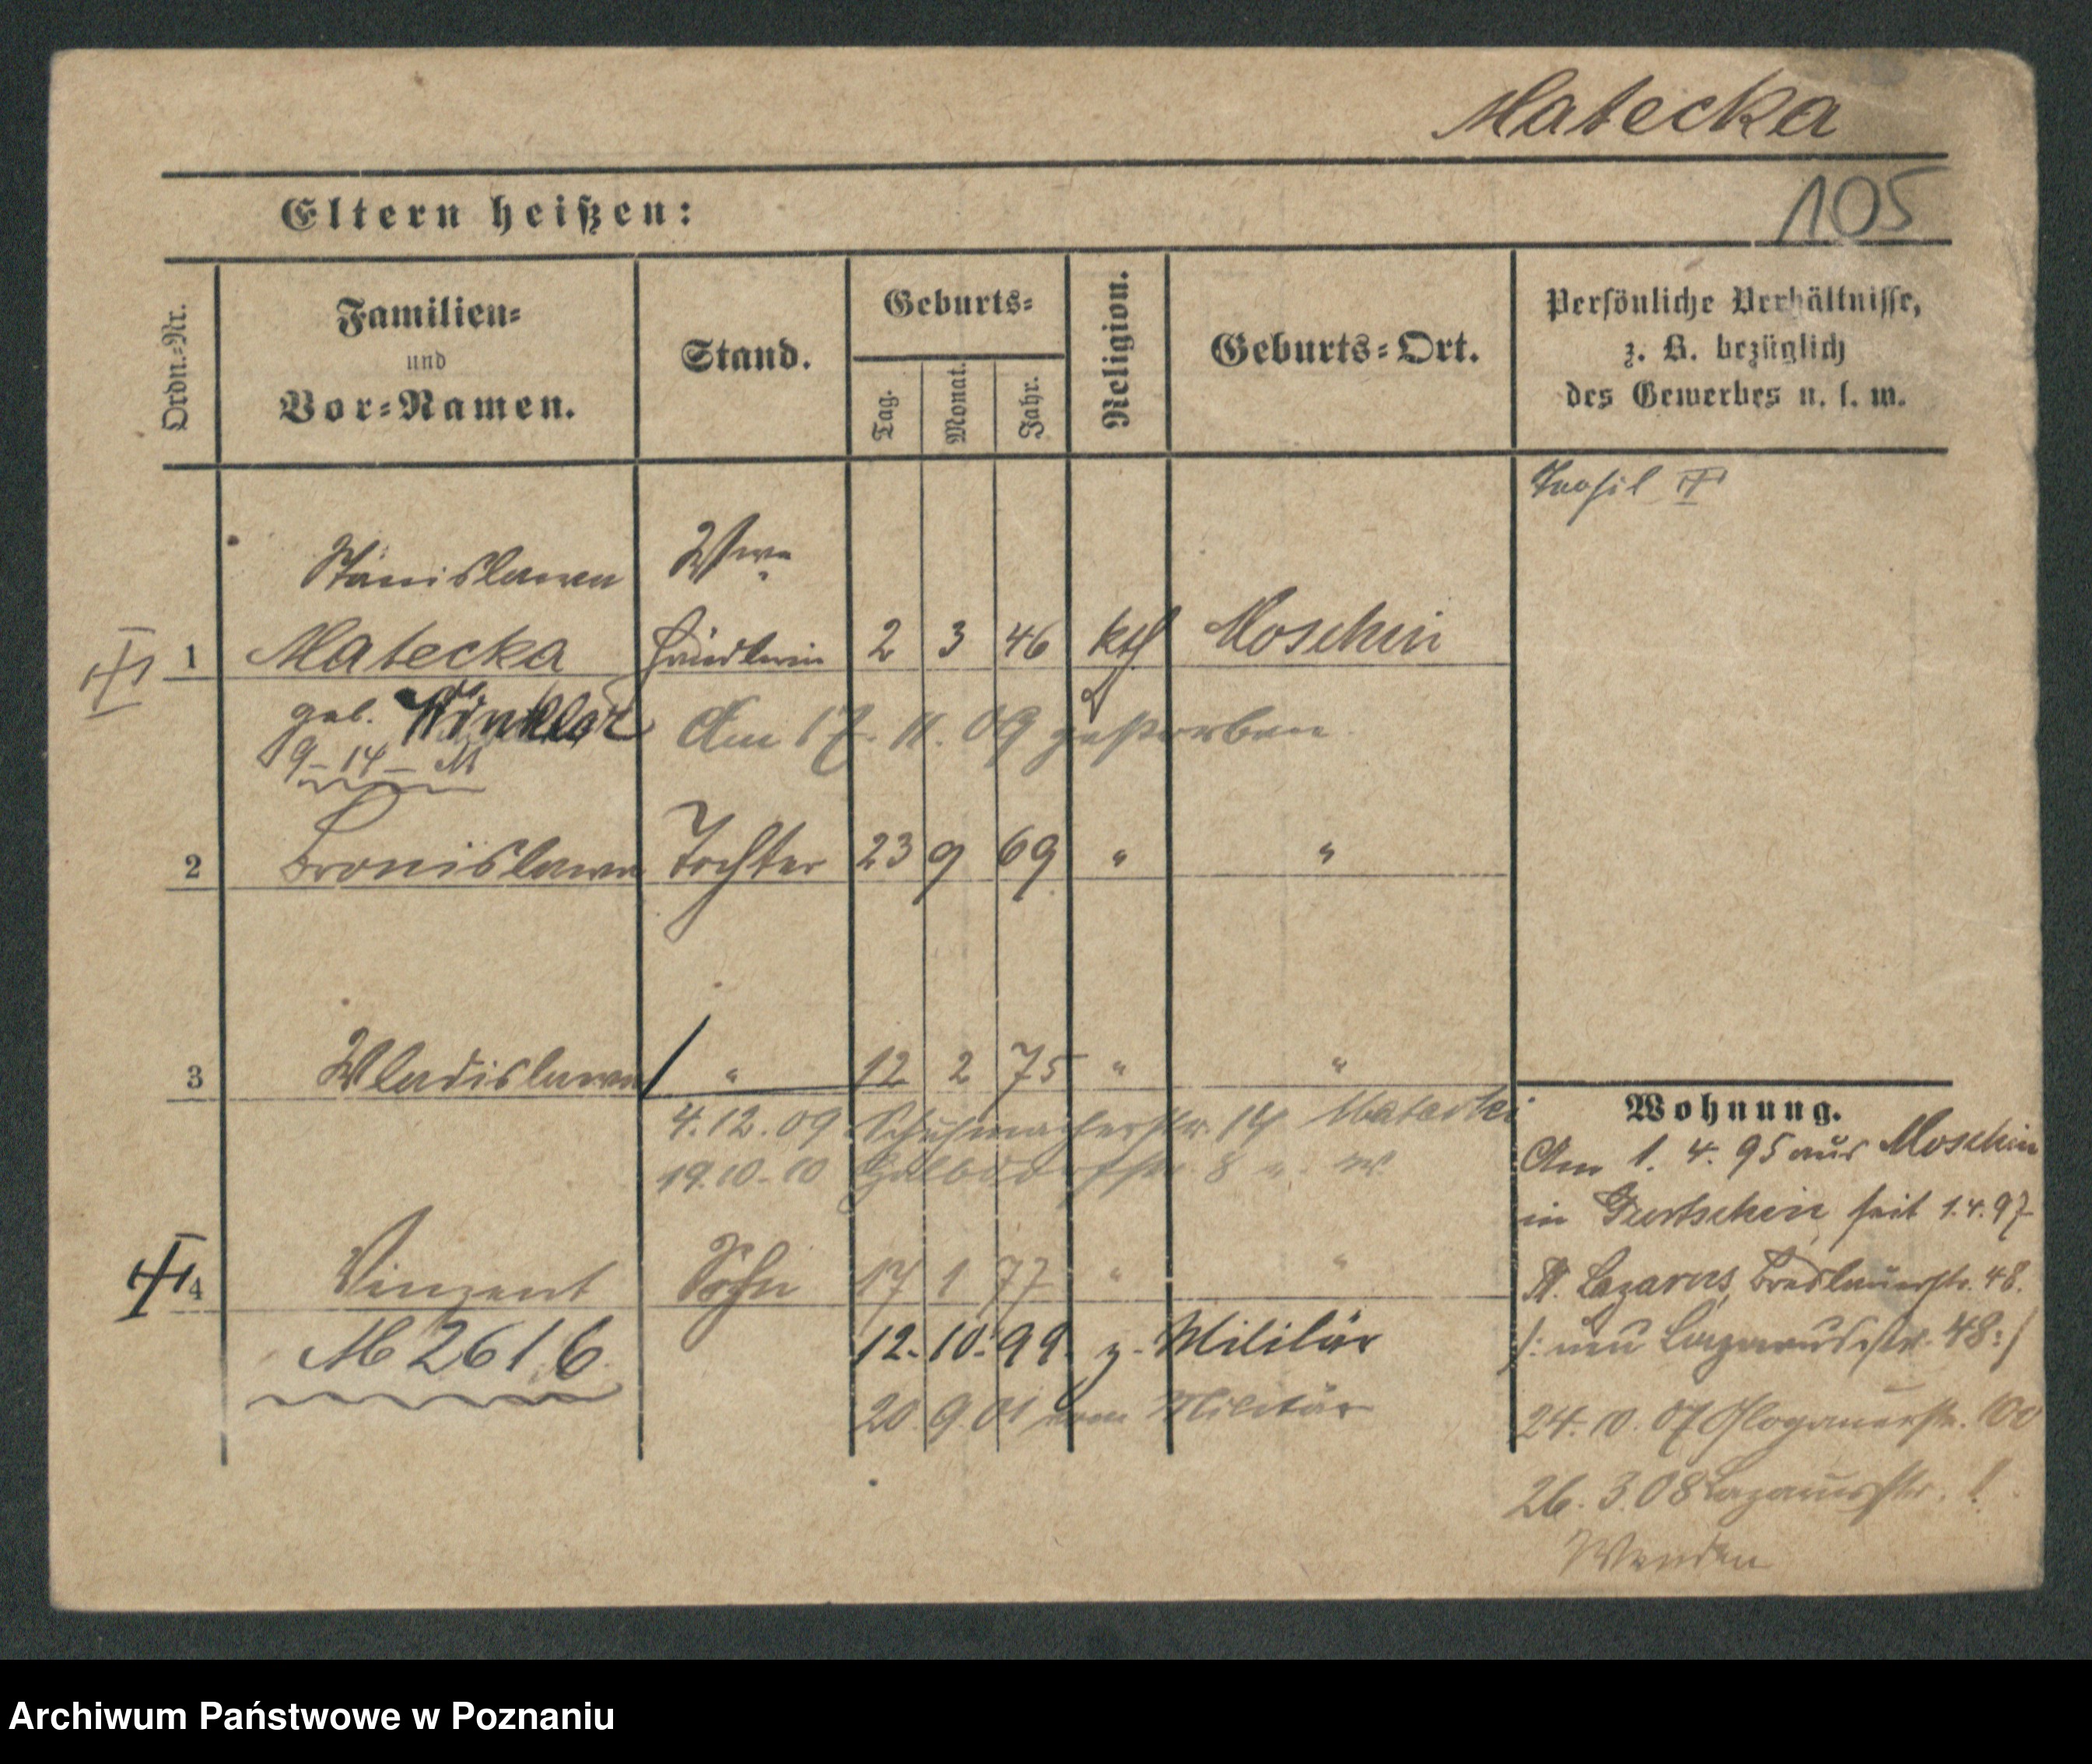 Matecka
105
Eltern heißen:
Ordn.=Nr.
Familien=
und
Vor=Namen.
Stand.
Geburts=
Tag.
Monat.
Jahr.
Religion.
Geburts=Ort.
Persönliche Verhältnisse,
z. B. bezüglich
des Gewerbes u. s. w.
Stanislawa Wwe
1 Matecka Händlerin 2 3 46 kth Moschin
geb. Winkler Am 17. 11. 09 gestorben
9 – 14 – M
2 Bronislawa Tochter 23 9 69 " "
3 Wladislawa " 12 2 75 " "
4.12.09 Schuhmacherstr. 14 Matecki
19.10.10 8
4 Vinzent Sohn 17 1 77 " "
M 2616 12. 10. 99. z. Militär
20 9 01 vom Militär
Wohnung.
Am 1. 4. 95 aus Moschin
in Gurtschin seit 1.4.97
St. Lazarus, Breslauerstr. 48.
/: neu Lazarusstr. 48 :/
24. 10. 07 Glogauerstr. 100
26. 3. 08 Lazarusstr.
Wenden
Archiwum Państwowe w Poznaniu